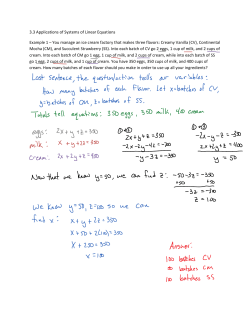 3.3 Applications of Systems of Linear Equations
Example 1 – You manage an ice cream factory that makes three flavors: Creamy Vanilla (CV), Continental
Mocha (CM), and Succulent Strawberry (SS). Into each batch of CV go 2 eggs, 1 cup of milk, and 2 cups of
cream. Into each batch of CM go 1 egg, 1 cup of milk, and 2 cups of cream, while into each batch of SS
go 1 egg, 2 cups of milk, and 1 cup of cream. You have 350 eggs, 350 cups of milk, and 400 cups of
cream. How many batches of each flavor should you make in order to use up all your ingredients?
Last sentence, the question/action tells our variables:
how many batches of each flavor. Let x=batches of CV,
y=batches of CM, z=batches of SS.
Totals tell equations: 350 eggs, 350 milk, 400 cream
eggs: 2x+y+z=350
milk: x+y+2z=350
cream: 2x+2y+z=400
2x+y+z=350
-2x-2y-4z=-700
-y-3z=-350
-2x-y-z=-350
2x+2y+z=400
y=50
Now that we know y=50, we can find z: -50-3z=-350
+50 +50
-3z=-300
z=100
We know y=50, z=100 so we can
find x: x+y+2z=350
x+50+2(100)=350
x+250=350
x=100
Answer:
100 batches CV
50 batches CM
100 batches SS